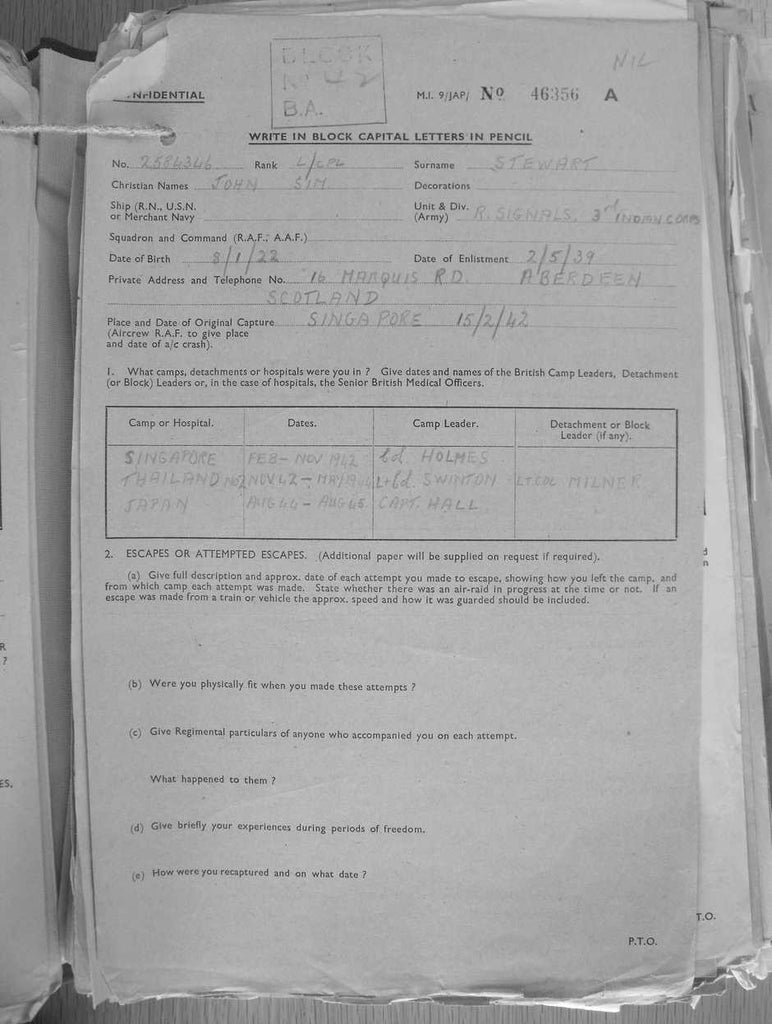 NIL
BLOCK
No 42
B.A.
NFIDENTIAL
M.I. 9/JAP/ No 46356 A
WRITE IN BLOCK CAPITAL LETTERS IN PENCIL
No. 2584346 Rank L/CPL Surname STEWART
Christian Names JOHN SIM Decorations
Ship (R.N., U.S.N. or Merchant Navy
Unit & Div. (Army) R. SIGNALS. 3rd INDIAN CORPS
Squadron and Command (R.A.F., A.A.F.)
Date of Birth 8/1/22 Date of Enlistment 2/5/39
Private Address and Telephone No. 16 MARQUIS RD. ABERDEEN
SCOTLAND
Place and Date of Original Capture SINGAPORE 15/2/42
(Aircrew R.A.F. to give place
and date of a/c crash).
1. What camps, detachments or hospitals were you in ? Give dates and names of the British Camp Leaders, Detachment
(or Block) Leaders or, in the case of hospitals, the Senior British Medical Officers.
Camp or Hospital. Dates. Camp Leader. Detachment or Block
Leader (if any).
SINGAPORE FEB - NOV 1942 Col. HOLMES
THAILAND No2 NOV 42 - MAY 1944 Lt Col. SWINTON LT. COL MILNER
JAPAN AUG 44 - AUG 45 CAPT. HALL
2. ESCAPES OR ATTEMPTED ESCAPES. (Additional paper will be supplied on request if required).
(a) Give full description and approx. date of each attempt you made to escape, showing how you left the camp, and
from which camp each attempt was made. State whether there was an air-raid in progress at the time or not. If an
escape was made from a train or vehicle the approx. speed and how it was guarded should be included.
(b) Were you physically fit when you made these attempts ?
(c) Give Regimental particulars of anyone who accompanied you on each attempt.
What happened to them ?
(d) Give briefly your experiences during periods of freedom.
(e) How were you recaptured and on what date ?
P.T.O.
T.O.
R
?
ES.